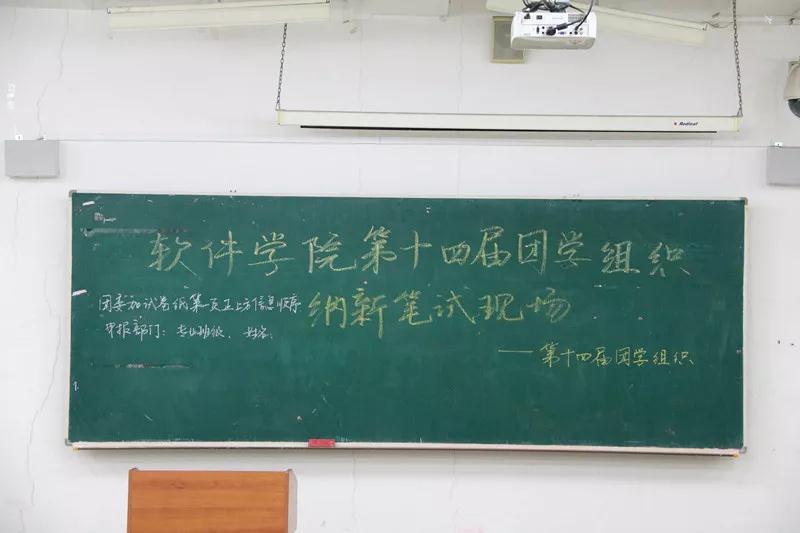 软件学院第十四届团学组织
纳新笔试现场
——第十四届团学组织
团委和试卷纸第一页正上方信息顺序
申报部门：专业班级、姓名、
Redleaf